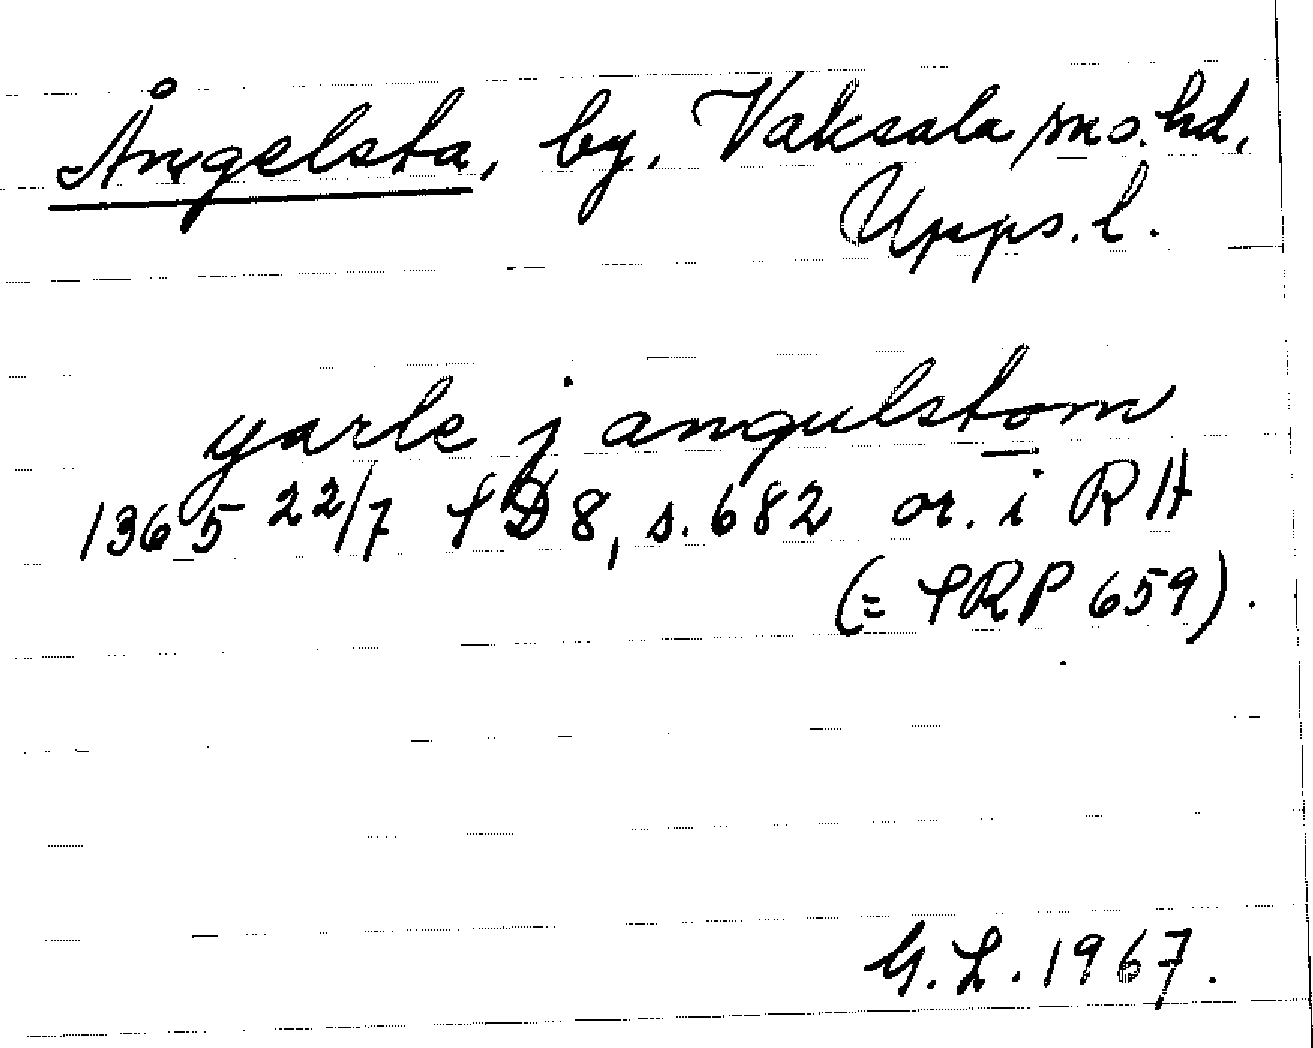 Ångelsta, by, Vaksala sn o. hd,
Upps. l.
yarle j angulstom
1365 22/7 SD 8, s. 682 or. i RA
(= SRP 659).
G. L. 1967.